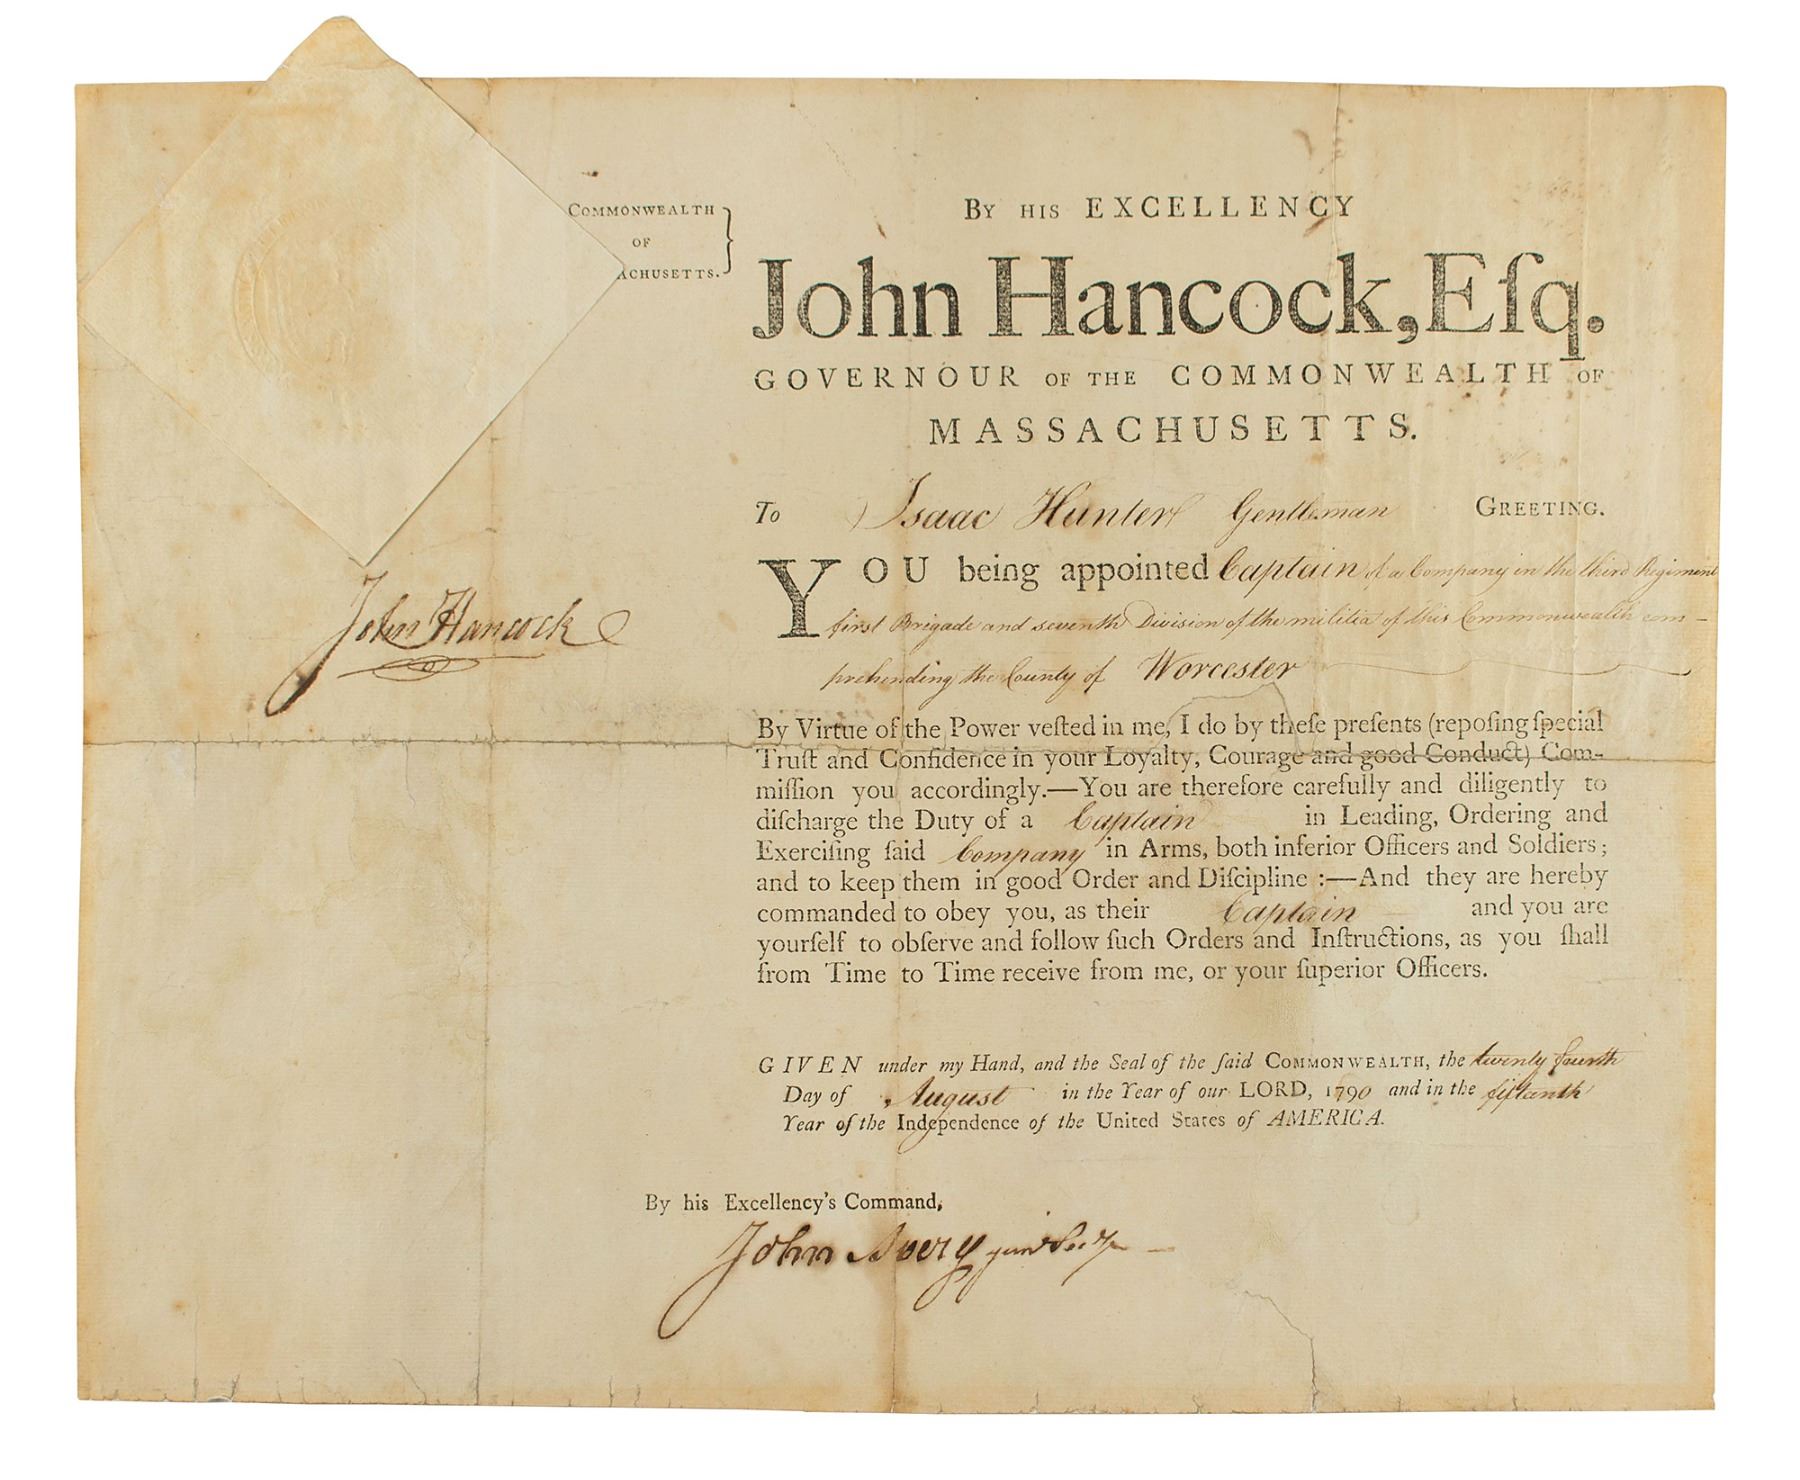 COMMONWEALTH
OF
ACHUSETTS.
BY HIS EXCELLENCY
John Hancock, Eſq.
GOVERNOUR OF THE COMMONWEALTH OF
MASSACHUSETTS.
To Isaac Hunter Gentleman GREETING.
YOU being appointed Captain of a Company in the third Regiment
first Brigade and seventh Division of the militia of this Commonwealth com-
prehending the County of Worcester
By Virtue of the Power veſted in me, I do by theſe preſents (repoſing ſpecial
Truſt and Confidence in your Loyalty, Courage and good Conduct) Com-
miſſion you accordingly.—You are therefore carefully and diligently to
diſcharge the Duty of a Captain in Leading, Ordering and
Exerciſing ſaid Company in Arms, both inferior Officers and Soldiers;
and to keep them in good Order and Diſcipline :—And they are hereby
commanded to obey you, as their Captain and you are
yourſelf to obſerve and follow ſuch Orders and Inſtructions, as you ſhall
from Time to Time receive from me, or your ſuperior Officers.
John Hancock
GIVEN under my Hand, and the Seal of the ſaid COMMONWEALTH, the twenty fourth
Day of August in the Year of our LORD, 1790 and in the fifteenth
Year of the Independence of the United States of AMERICA.
By his Excellency's Command,
John Avery